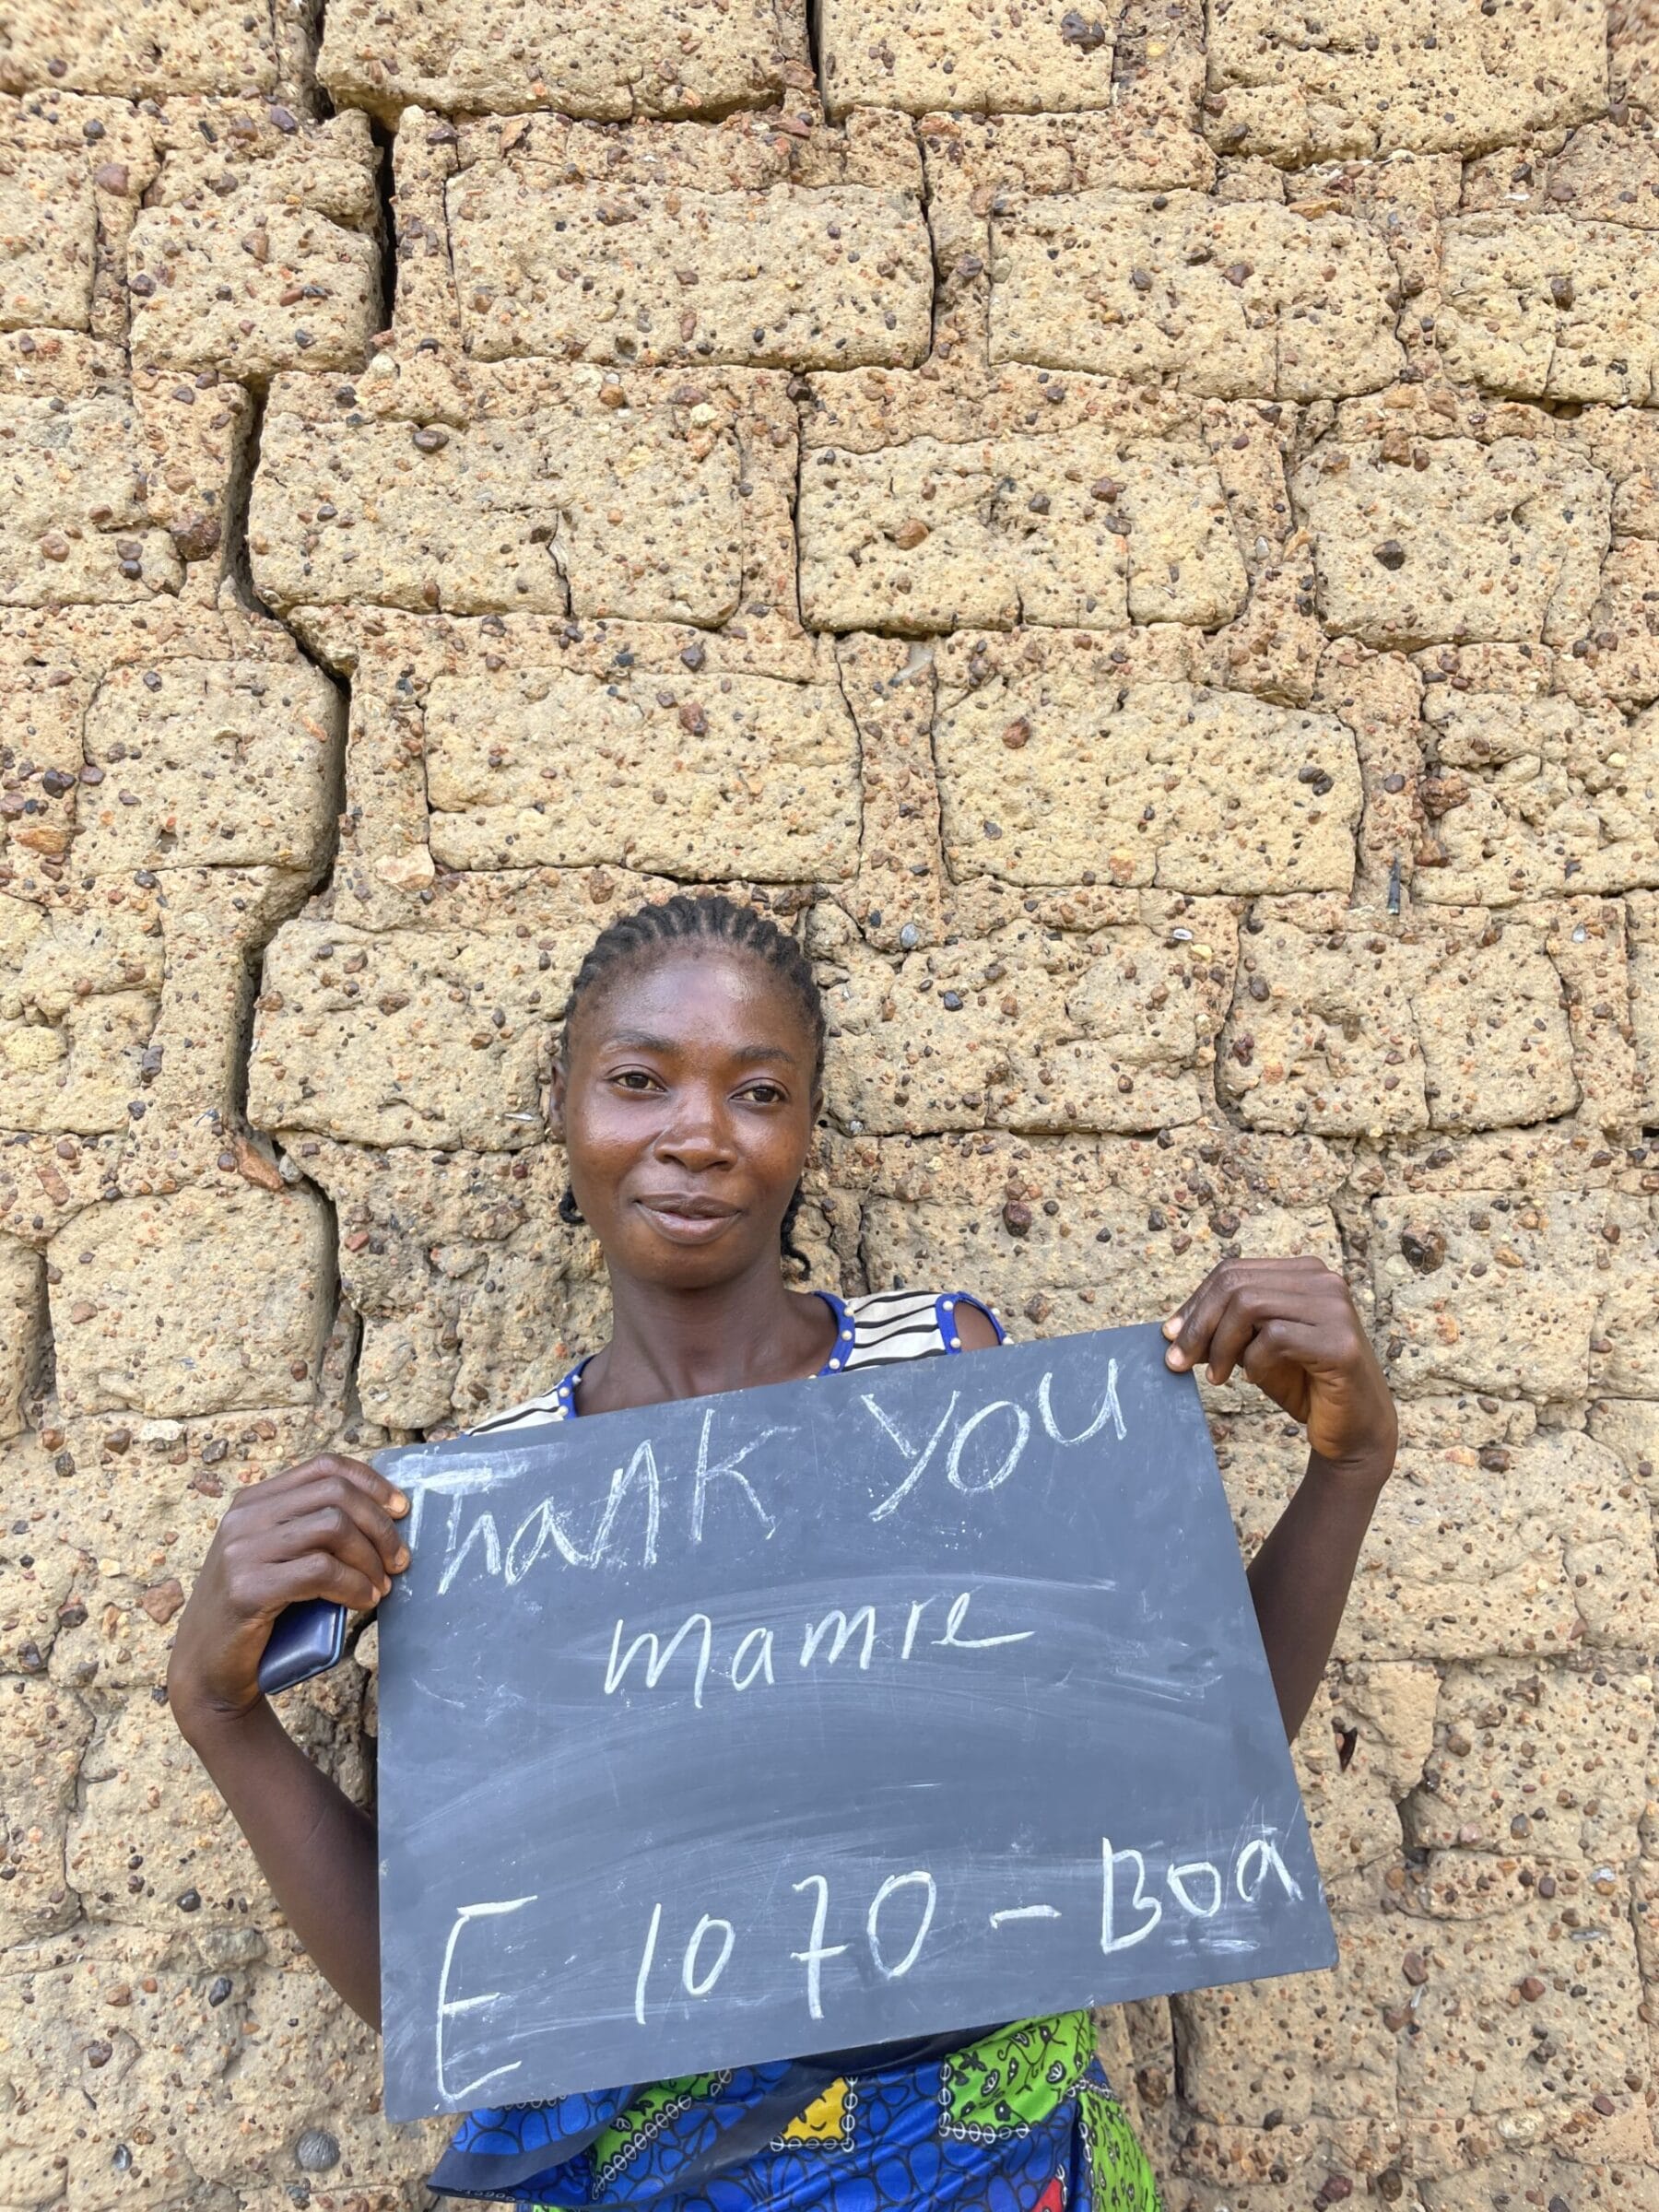 ThanK you
mamre
E 1070 - Boa